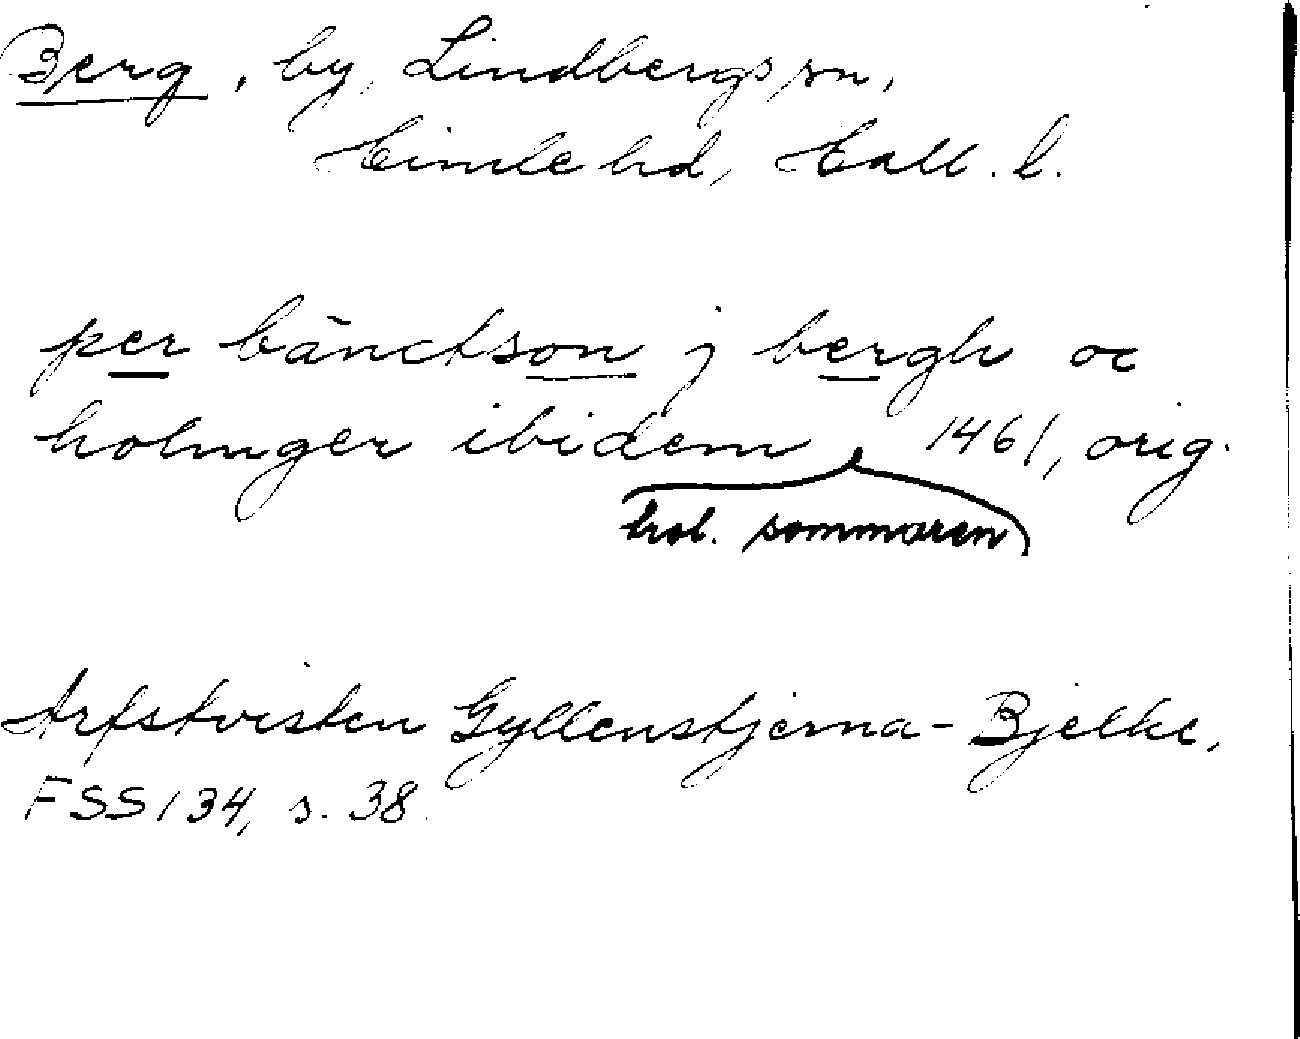 Berg, by, Lindbergs sn,
Himle hd, Hall. l.
per bänctson j bergh oc
holmger ibidem 1461, orig.
trol. sommaren
Arfstvisten Gyllenstjerna-Bjelke,
FSS 134, s. 38.